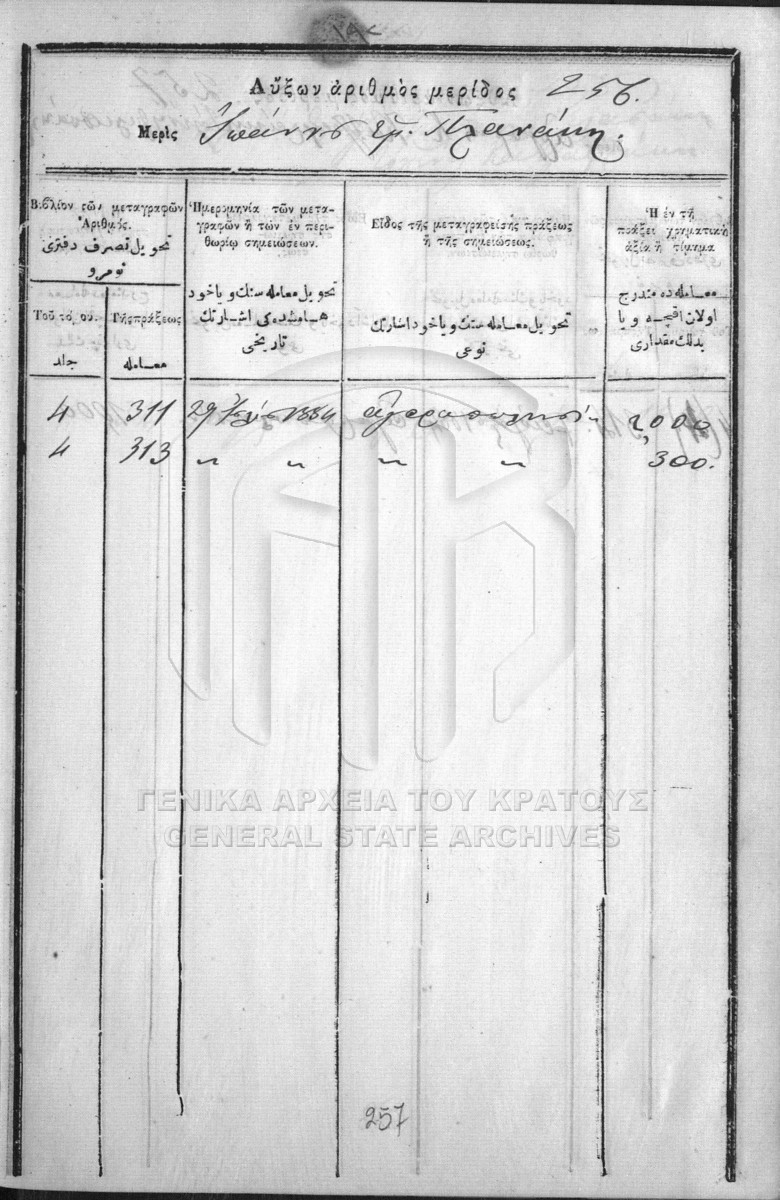 Αὔξων ἀριθμὸς μερίδος 256.
Μερὶς Ἰωάννης Εμ.
Βιβλίον τῶν μεταγραφῶν
Ἀριθμός.
تحويل تصرف دفترى
نومرو
Τοῦ τόμου.
جلد
Τῆς πράξεως
معامله
Ἡμερομηνία τῶν μετα-
γραφῶν ἢ τῶν ἐν περι-
θωρίῳ σημειώσεων.
تحويل معامله سنك وياخود
هامشده كى اشارتك
تاريخى
Εἶδος τῆς μεταγραφείσης πράξεως
ἢ τῆς σημειώσεως.
تحويل معامله سنك وياخود اشارتك
نوعى
Ἡ ἐν τῇ
πράξει χρηματικὴ
ἀξία ἢ τίμημα
معامله ده مندرج
اولان اقچه ويا
بدلك مقدارى
4 311 29 1884 ἀγοραπωλησία 2000
4 313 " " " " 300.
ΓΕΝΙΚΑ ΑΡΧΕΙΑ ΤΟΥ ΚΡΑΤΟΥΣ
GENERAL STATE ARCHIVES
257